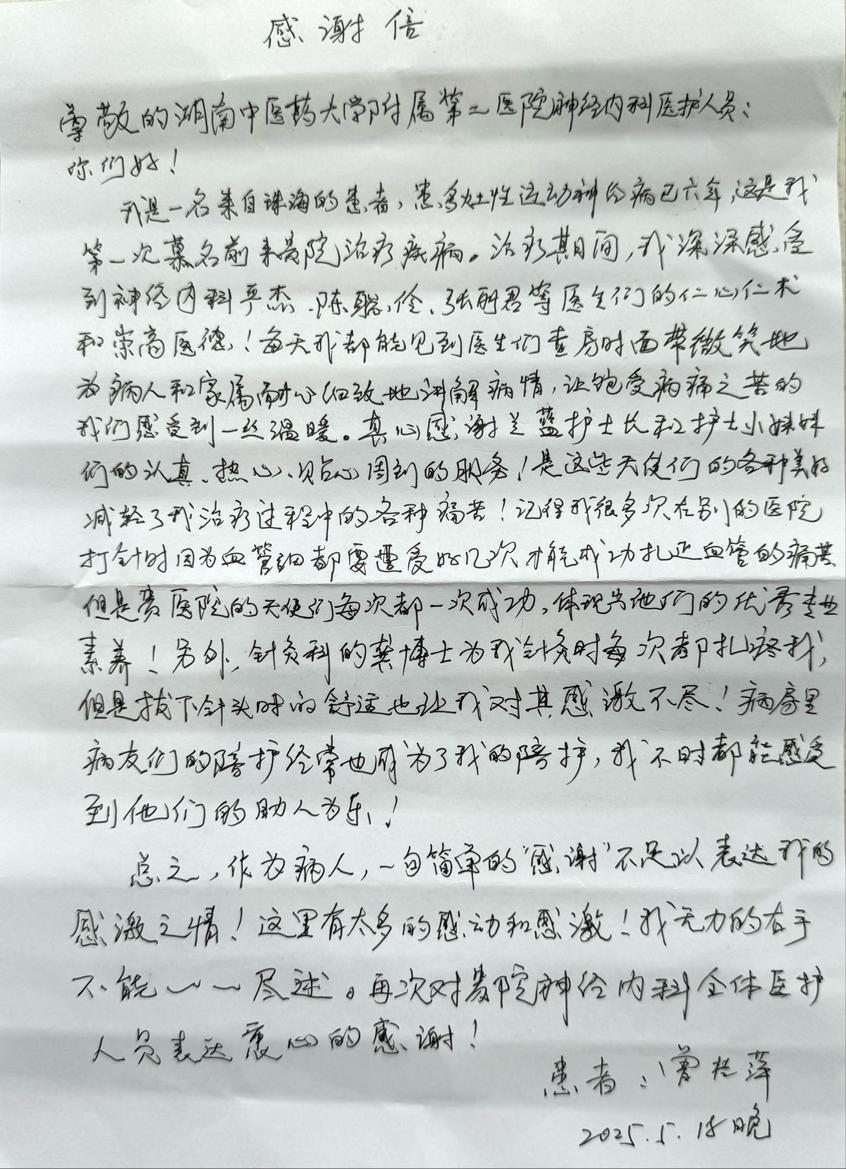 感谢信
尊敬的湖南中医药大学附属第二医院神经内科医护人员：
你们好！
我是一名来自珠海的患者，患多灶性运动神经病已六年，这是我
第一次慕名前来贵院治疗疾病。治疗期间，我深深感受
到神经内科严杰、陈聪、伦、张丽君等医生们的仁心仁术
和崇高医德！每天我都能见到医生们查房时面带微笑地
为病人和家属耐心细致地讲解病情，让饱受病痛之苦的
我们感受到一丝温暖。真心感谢兰蓝护士长和护士小妹妹
们的认真、热心、贴心周到的服务！是这些天使们的各种美好
减轻了我治疗过程中的各种痛苦！记得我很多次在别的医院
打针时因为血管细都要遭受好几次才能成功扎进血管的痛苦
但是贵医院的天使们每次都一次成功，体现出她们的优秀专业
素养！另外，针灸科的龚博士为我针灸时每次都扎疼我，
但是拔下针头时的舒适也让我对其感激不尽！病房里
病友们的陪护经常也成为了我的陪护，我不时都能感受
到他们的助人为乐！
总之，作为病人，一句简单的“感谢”不足以表达我的
感激之情！这里有太多的感动和感激！我无力的右手
不能一一尽述。再次对贵院神经内科全体医护
人员表达衷心的感谢！
患者：曾 萍
2025.5.18晚